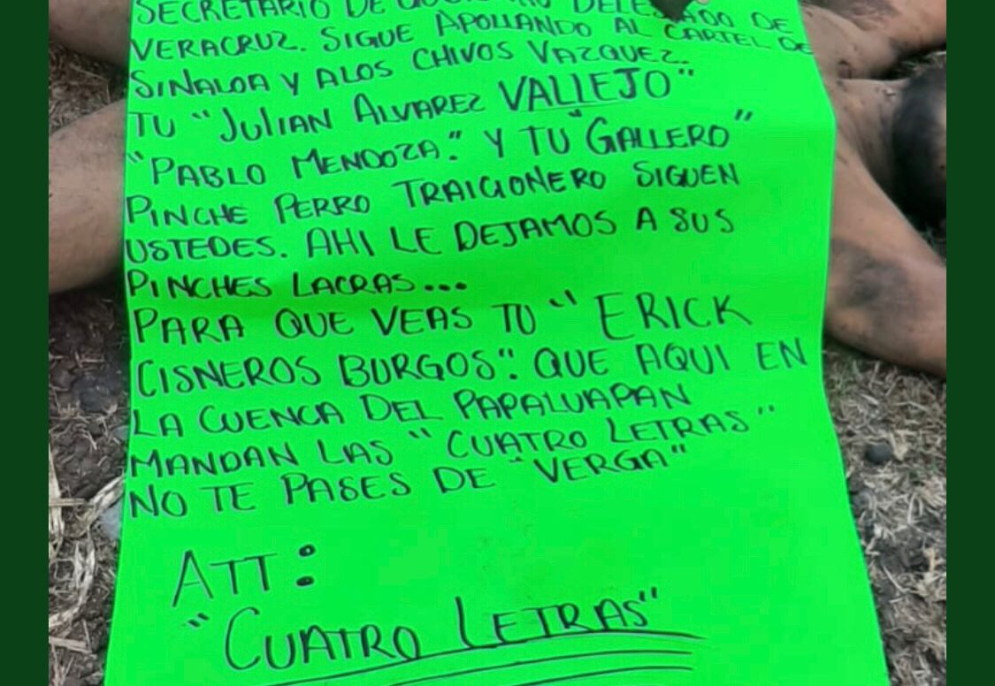 SECRETARIO DE DEL DE
VERACRUZ. SIGUE APOLLANDO AL CARTEL DE
SINALOA Y ALOS CHIVOS VAZQUEZ.
TU "JULIAN ALVAREZ VALLEJO"
"PABLO MENDOZA." Y TU "GALLERO"
PINCHE PERRO TRAICIONERO SIGUEN
USTEDES. AHI LE DEJAMOS A SUS
PINCHES LACRAS...
PARA QUE VEAS TU "ERICK
CISNEROS BURGOS". QUE AQUI EN
LA CUENCA DEL PAPALUAPAN
MANDAN LAS "CUATRO LETRAS"
NO TE PASES DE "VERGA"
ATT:
"CUATRO LETRAS"